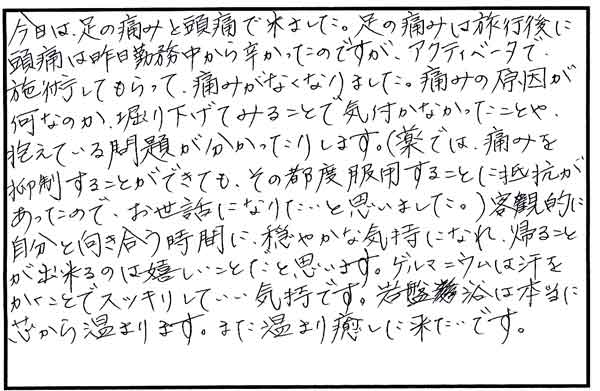 今日は、足の痛みと頭痛で来ました。足の痛みは旅行後に
頭痛は昨日勤務中から辛かったのですが、アクティベータで
施術してもらって、痛みがなくなりました。痛みの原因が
何なのか、堀り下げてみることで気付かなかったことや、
抱えている問題が分かったりします。(薬では、痛みを
抑制することができても、その都度服用することに抵抗が
あったので、お世話になりたい…と思いました。)客観的に
自分と向き合う時間に、穏やかな気持になれ、帰ること
が出来るのは嬉しいことだと思います。ゲルマニウムは汗を
かくことでスッキリしていい気持です。岩盤浴は本当に
芯から温まります。また温まり癒しに来たいです。